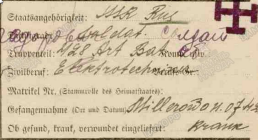 Staatsangehörigkeit: SSR Rus
Dienstgrad: Soldat.
Truppenteil: 428 Art Bat Komp. usw.
Zivilberuf: Elektrotechn
Matrikel Nr. (Stammrolle des Heimatstaates)
Gefangennahme (Ort und Datum) Millerowo
Ob gesund, krank, verwundet eingeliefert: krank